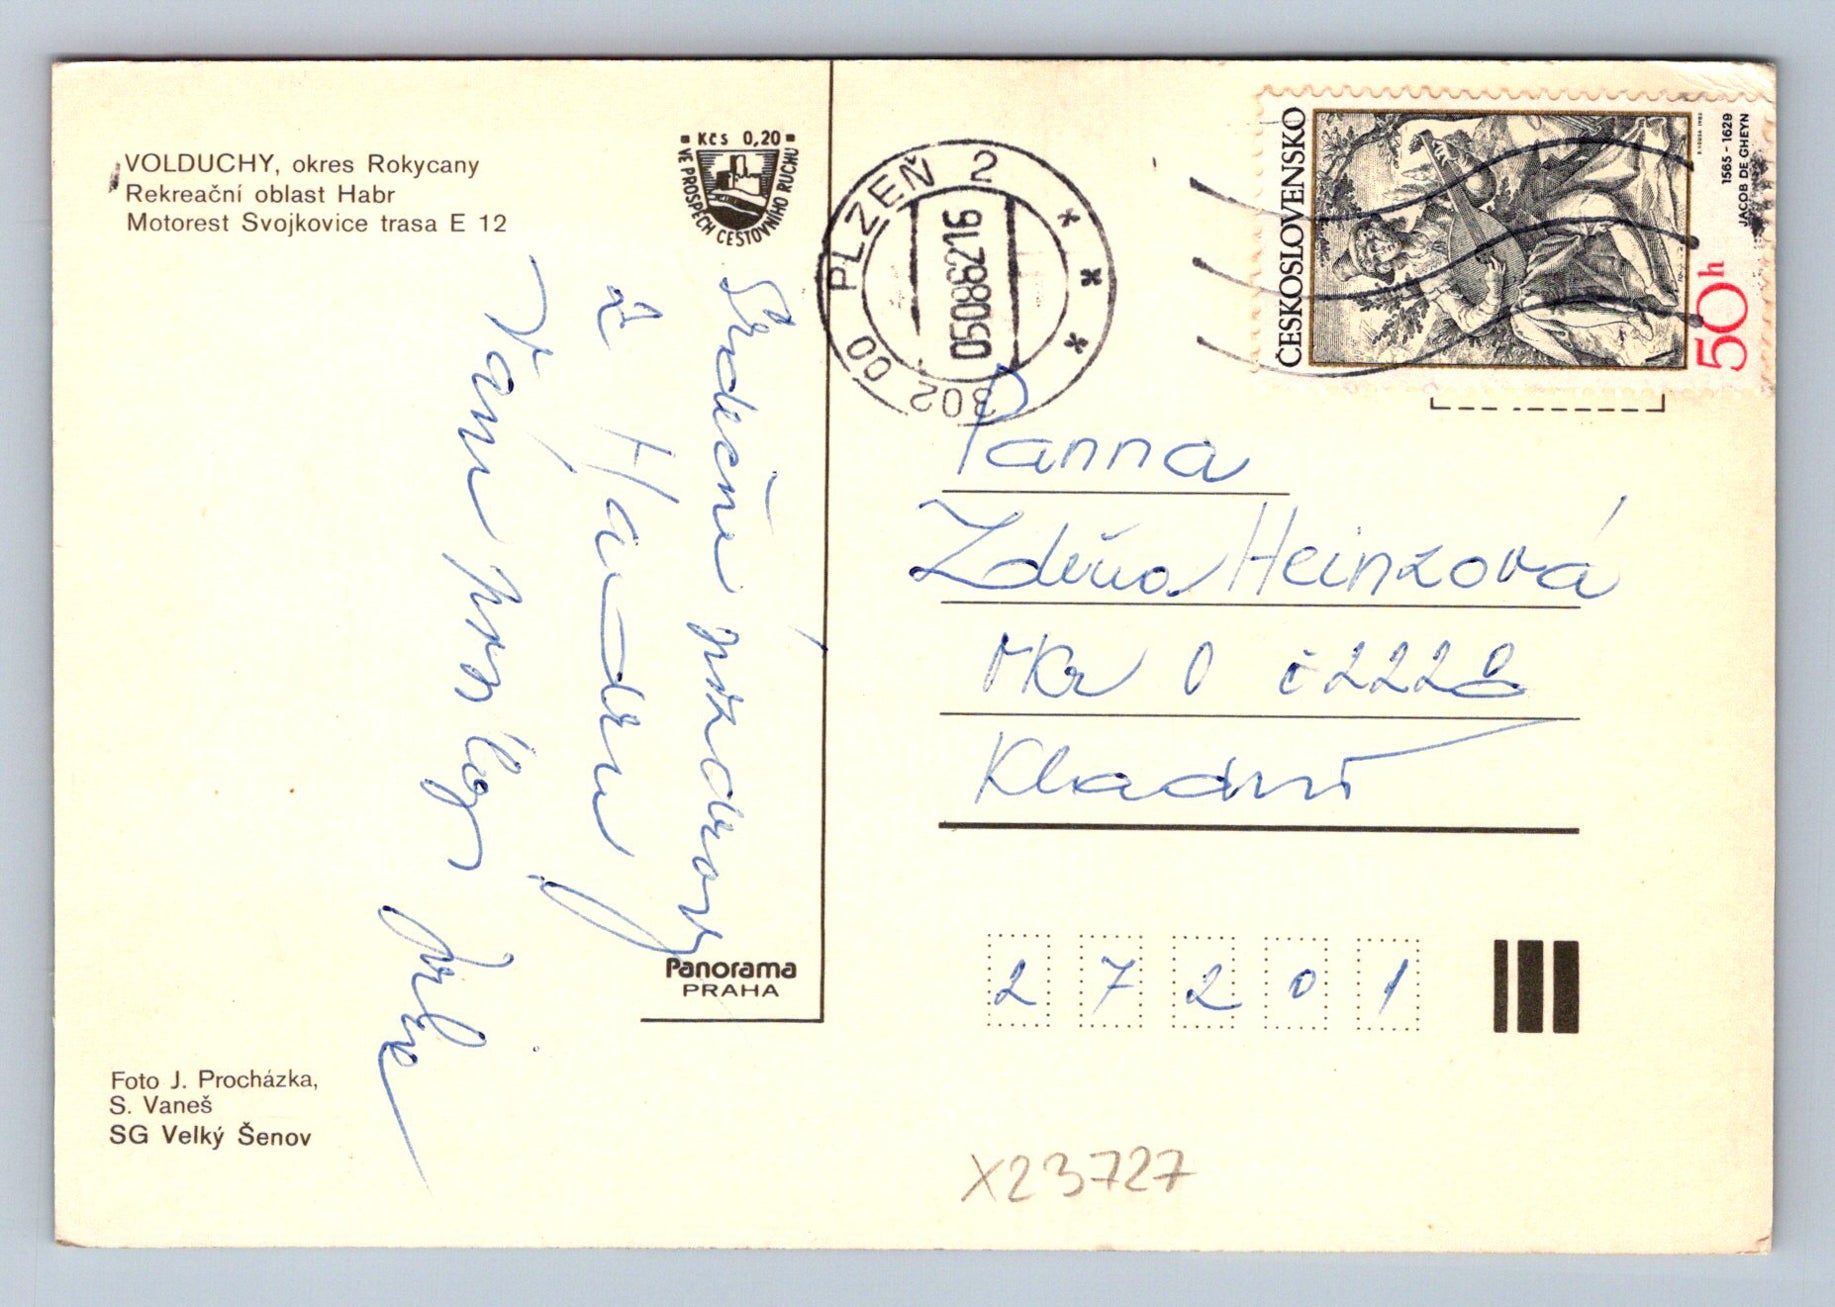 VOLDUCHY, okres Rokycany
Rekreační oblast Habr
Motorest Svojkovice trasa E 12
Kčs 0,20
VE PROSPĚCH CESTOVNÍHO RUCHU
Srdečné pozdravy
z
Vám
Panorama
PRAHA
Foto J. Procházka,
S. Vaneš
SG Velký Šenov
PLZEŇ 2
05086216
302 00
ČESKOSLOVENSKO
1565 - 1629
JACOB DE GHEYN
50h
Panna
Zdeňa Heinzová
č 222
Kladno
27201
X23727